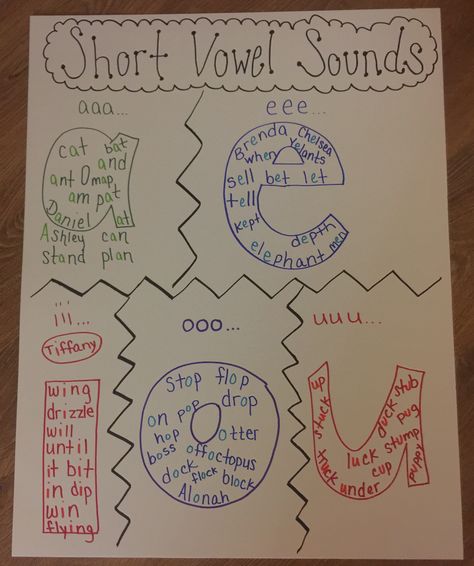 Short Vowel Sounds
aaa...
cat bat
and
ant map
am pat
Daniel at
Ashley can
stand plan
eee...
Brenda Chelsea
when Yelants
sell bet let
tell
kept
depth
elephant men
iii...
Tiffany
wing
drizzle
will
until
it bit
in dip
win
flying
ooo...
stop flop
on pop drop
hop otter
boss off octopus
dock flock block
Alonah
uuu...
up
stuck
truck
under
cup
luck stump
duck
stub
pug
puppy